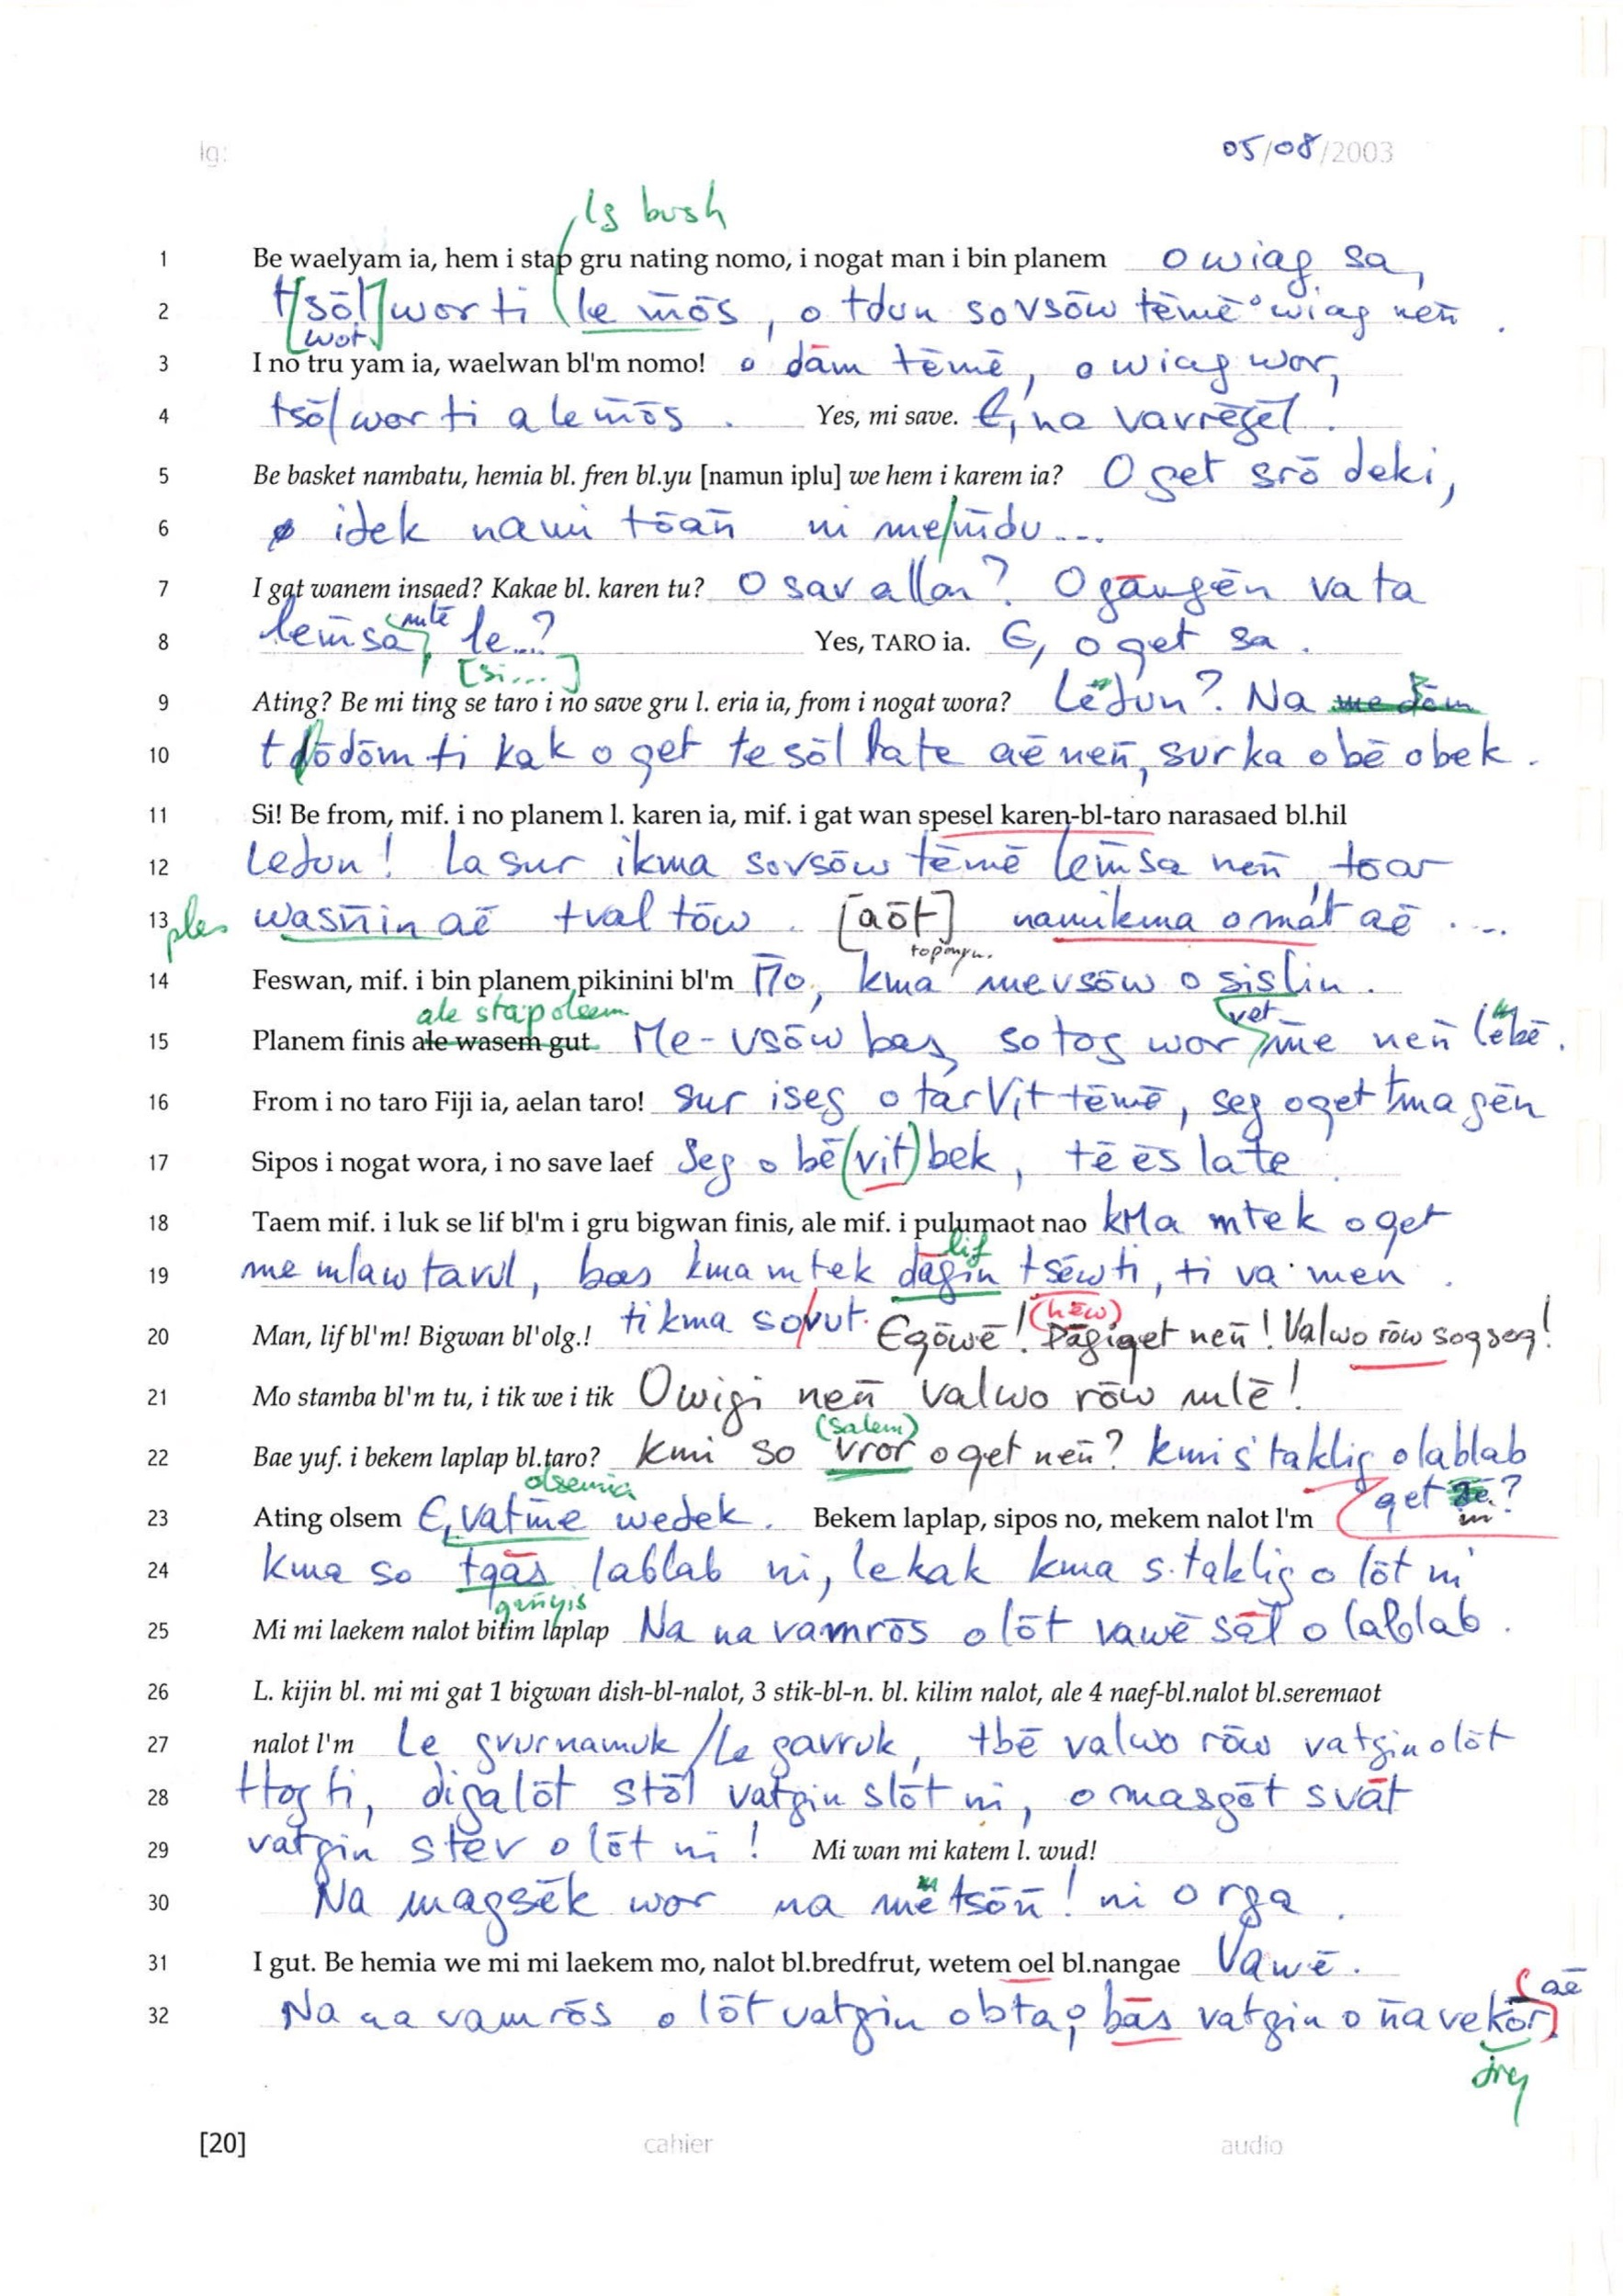 lg: 05/08/2003
lg bush
1 Be waelyam ia, hem i stap gru nating nomo, i nogat man i bin planem o wiag sa,
2 t[sōl] wor ti le m̄ōs, o tdun sovsōw tēmē wiag nen̄.
[wot]
3 I no tru yam ia, waelwan bl'm nomo! o dām tēmē, o wiag wor,
4 tsōl wor ti a le m̄ōs. Yes, mi save. Ē, na vavrēgēl!
5 Be basket nambatu, hemia bl. fren bl.yu [namun iplu] we hem i karem ia? O get srō deki,
6 idek nami tōan̄ ni me/m̄du...
7 I gat wanem insaed? Kakae bl. karen tu? O sav allon? O gāngēn va ta
8 lem̄sa, mlē le...? Yes, TARO ia. Ē, o get sa.
[si...]
9 Ating? Be mi ting se taro i no save gru l. eria ia, from i nogat wora? Ledun? Na me dēm
10 t dōdōm ti kak o get te sōl late aē nen̄, sur ka o bē obek.
11 Si! Be from, mif. i no planem l. karen ia, mif. i gat wan spesel karen-bl-taro narasaed bl.hil
12 Ledun! La sur ikma sovsōw tēmē lem̄sa nen̄, toar
13 ples wasn̄in aē tval tōw. [aōt] namikma o māt aē ....
toponym.
14 Feswan, mif. i bin planem pikinini bl'm n̄o, kma mevsōw o sislin.
ale stap oleem
15 Planem finis ale wasem gut Me-vsōw bas, so tog wor vet m̄e nen̄ lēbē.
16 From i no taro Fiji ia, aelan taro! Sur iseg o tar Vit tēmē, seg oget tmagēn
17 Sipos i nogat wora, i no save laef Seg o bē (vit) bek, tē ēs late
18 Taem mif. i luk se lif bl'm i gru bigwan finis, ale mif. i pulumaot nao kMa mtek o get
lif
19 me mlaw tavul, bas kma mtek dāgin tsēw ti, ti va men.
20 Man, lif bl'm! Bigwan bl'olg.! ti kma so/vut. Egōwē! (hēw) Dāgiget nen̄! Valwo rōw sogseg!
21 Mo stamba bl'm tu, i tik we i tik O wigi nen̄ valwo rōw mlē!
(salem)
22 Bae yuf. i bekem laplap bl.taro? kmi so vror o get nen̄? kmi s' taklig o lablab
olsemia get ni?
23 Ating olsem Ē, vatm̄e wedek. Bekem laplap, sipos no, mekem nalot l'm
24 kma so tgās lablab ni, lekak kma s.taklig o lōt ni
gan̄yis
25 Mi mi laekem nalot bitim laplap Na na vamrōs o lōt vawē sāl o lablab.
26 L. kijin bl. mi mi gat 1 bigwan dish-bl-nalot, 3 stik-bl-n. bl. kilim nalot, ale 4 naef-bl.nalot bl.seremaot
27 nalot l'm Le gvurnamuk / Le gavruk, tbē valwo rōw vatgin o lōt
28 ttog ti, digalōt stōl vatgin slōt ni, o masgēt svāt
29 vatgin stēv o lōt ni! Mi wan mi katem l. wud!
30 Na magsēk wor na m̄etsōn̄! ni o rga.
31 I gut. Be hemia we mi mi laekem mo, nalot bl.bredfrut, wetem oel bl.nangae Vawē.
aē
32 Na na vamrōs o lōt vatgin o btap bās vatgin o n̄avekōr.
drey
[20] cahier audio